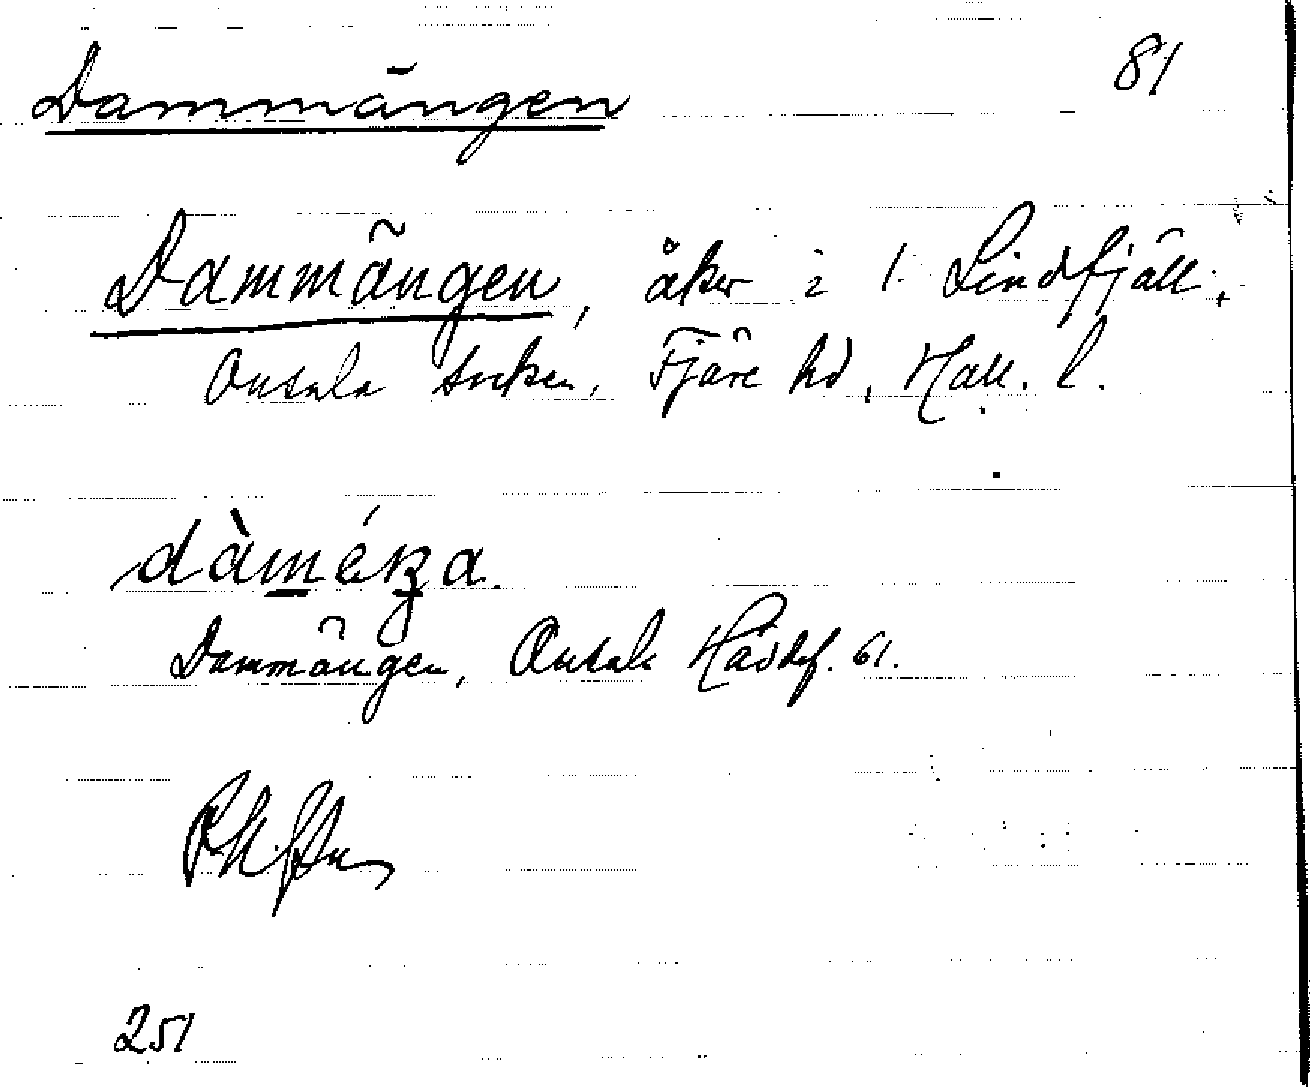 Dammängen 81
Dammängen, åker i 1. Lindfjäll,
Onsala socken, Fjäre hd, Hall. l.
Dammängen, Onsala 61.
251